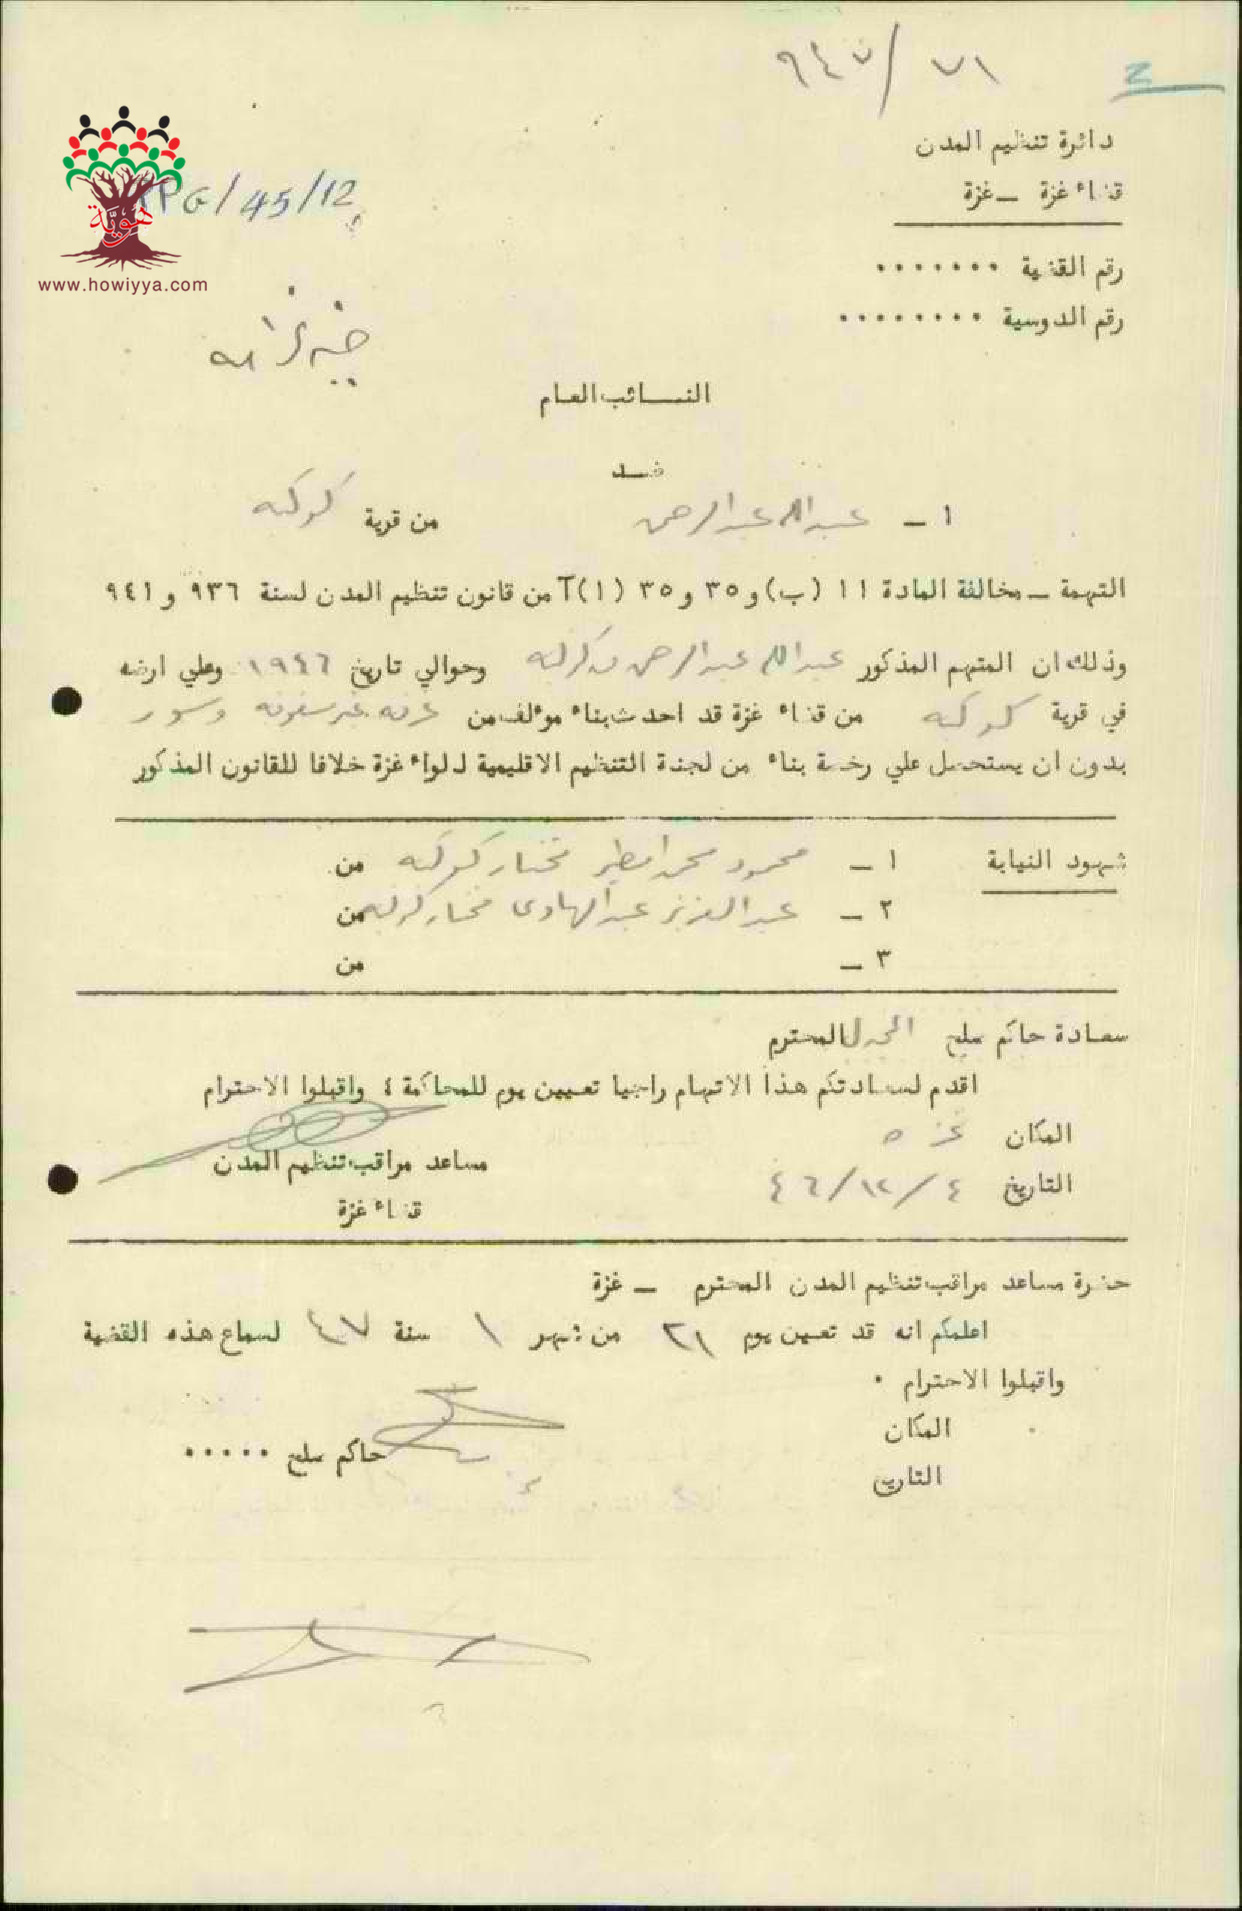 ٧١ / ٩٤٧
دائرة تنظيم المدن
قضاء غزة ــ غزة
TPG/45/12
هوية
www.howiyya.com
رقم القضية .......
رقم الدوسية ........
النــائب العام
ضــد
١ ــ عبدالله عبدالرحمن من قرية كوكبه
التهمة ــ مخالفة المادة ١١ (ب) و ٣٥ و ٣٥ (١) آ من قانون تنظيم المدن لسنة ٩٣٦ و ٩٤١
وذلك ان المتهم المذكور عبدالله عبدالرحمن من كوكبه وحوالي تاريخ ١٩٤٦ وعلي ارضه
في قرية كوكبه من قضاء غزة قد احدث بناء موءلف من غرفه غير مسقوفه وسور
بدون ان يستحصل علي رخصة بناء من لجنة التنظيم الاقليمية للواء غزة خلافا للقانون المذكور
شهود النيابة ١ ــ محمود محمد امطير مختار كوكبه من
٢ ــ عبدالعزيز عبدالهادى مختار كوكبه من
٣ ــ من
سعادة حاكم صلح المجدل المحترم
اقدم لسعادتكم هذا الاتهام راجيا تعيين يوم للمحاكمة ٤ واقبلوا الاحترام
المكان غزه
مساعد مراقب تنظيم المدن
التاريخ ٤/١٢/٤٦
قضاء غزة
حضرة مساعد مراقب تنظيم المدن المحترم ــ غزة
اعلمكم انه قد تعين يوم ٢١ من شهر ١ سنة ٤٧ لسماع هذه القضية
واقبلوا الاحترام .
المكان
حاكم صلح .....
التاريخ